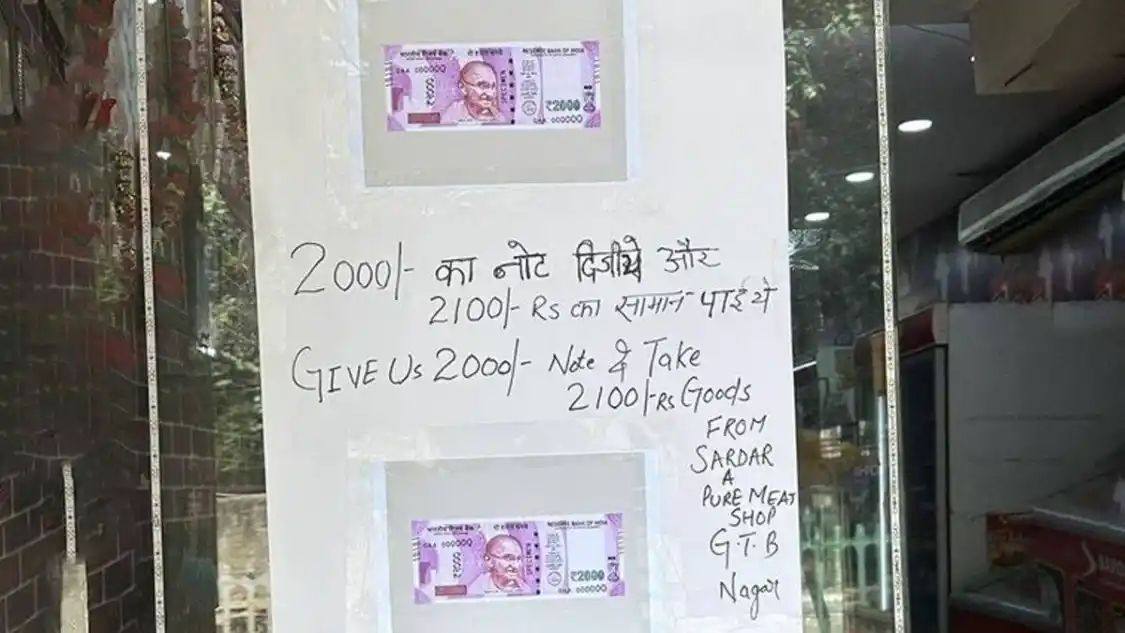 भारतीय रिज़र्व बैंक
RESERVE BANK OF INDIA
0AA 000000
₹2000
0AA 000000
2000/- का नोट दिजीये और
2100/- Rs का सामान पाईये
GIVE US 2000/- Note & Take
2100/- Rs Goods
FROM
SARDAR
A
PURE MEAT
SHOP
G.T.B
Nagar
भारतीय रिज़र्व बैंक
RESERVE BANK OF INDIA
0AA 000000
₹2000
0AA 000000